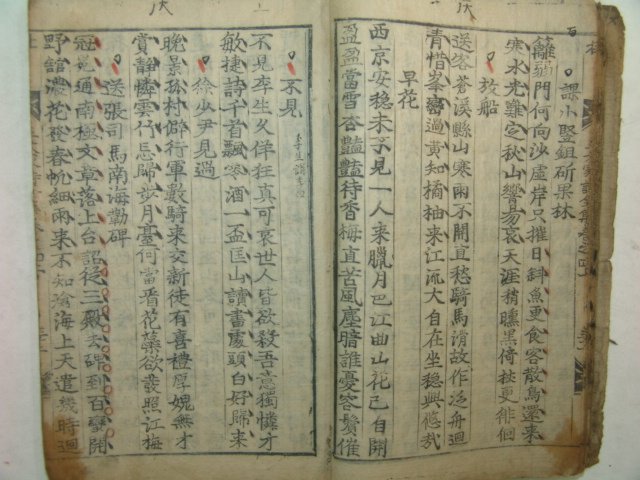 課小豎鉏斫果林
籬弱門何向沙虛岸只摧日斜魚更食客散鳥還來
寒水光難定秋山響易哀天涯稍曛黑倚杖更徘徊
放船
送客蒼溪縣山寒雨不開直愁騎馬滑故作泛舟迴
青惜峯巒過黃知橘柚來江流大自在坐穩興悠哉
早花
西京安穩未不見一人來臘月巴江曲山花已自開
盈盈當雪杏艷艷待香梅直苦風塵暗誰憂容鬢催
不見
不見李生久佯狂真可哀世人皆欲殺吾意獨憐才
敏捷詩千首飄零酒一盃匡山讀書處頭白好歸來
徐少尹見過
晚景孤村僻行軍數騎來交新徒有喜禮厚媿無才
賞靜憐雲竹忘歸步月臺何當看花藥欲發照江梅
送張司馬南海勒碑
冠冕通南極文章落上台詔從三殿去碑到百蠻開
野舘濃花發春帆細雨來不知滄海上天遣幾時迴